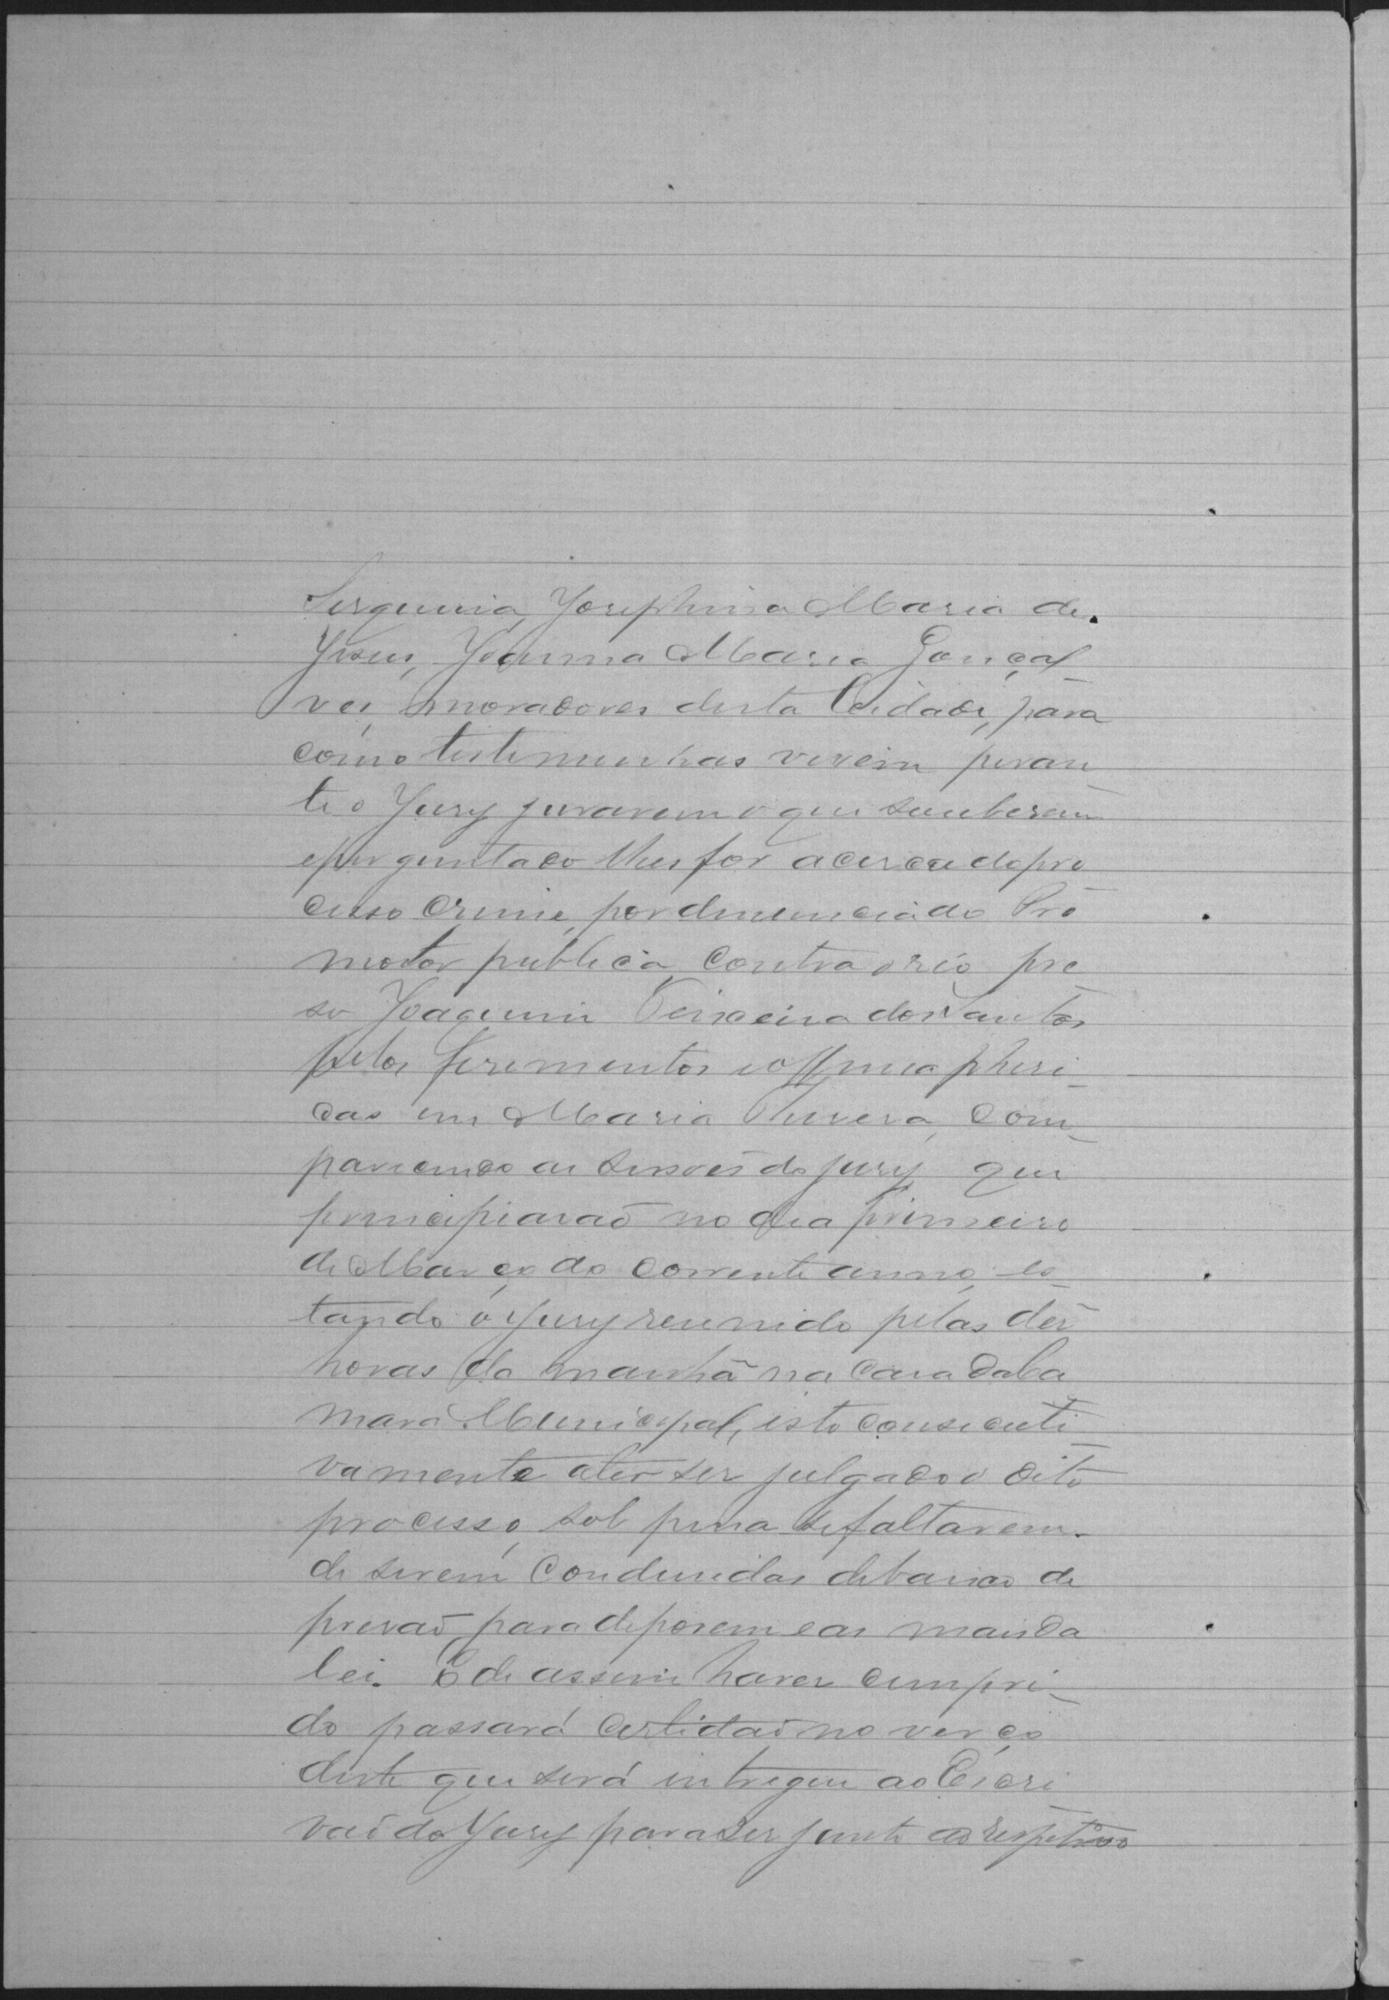 Josephina Maria de
Jesus, Joanna Maria Gonçal
ves, moradores desta Cidade, para
como testemunhas virem peran
te o Jury jurarem o que souberem
e perguntado lhes for acerca do pro
cesso crime, por denuncia do Pro
motor publico, contra o réo pre
so Joaquim Teixeira dos Santos
pelos ferimentos e offenças phesi_
cas em Maria com_
parecendo as sessoes do jury que
principiaraõ no dia primeiro
de Março do corrente anno, es_
tando o Jury reunido pelas dez
horas da manhã na casa da Ca
mara Municipal, isto consecuti
vamente até ser julgado o dito
processo, sob pena se faltarem
de serem conduzidas debaixo de
prezaõ, para deporem e as mais da
lei. E de assim haver cumpri_
do passará certidaõ no verço
deste que será intregue ao Escri
vaõ do Jury para ser junto ao respetivo